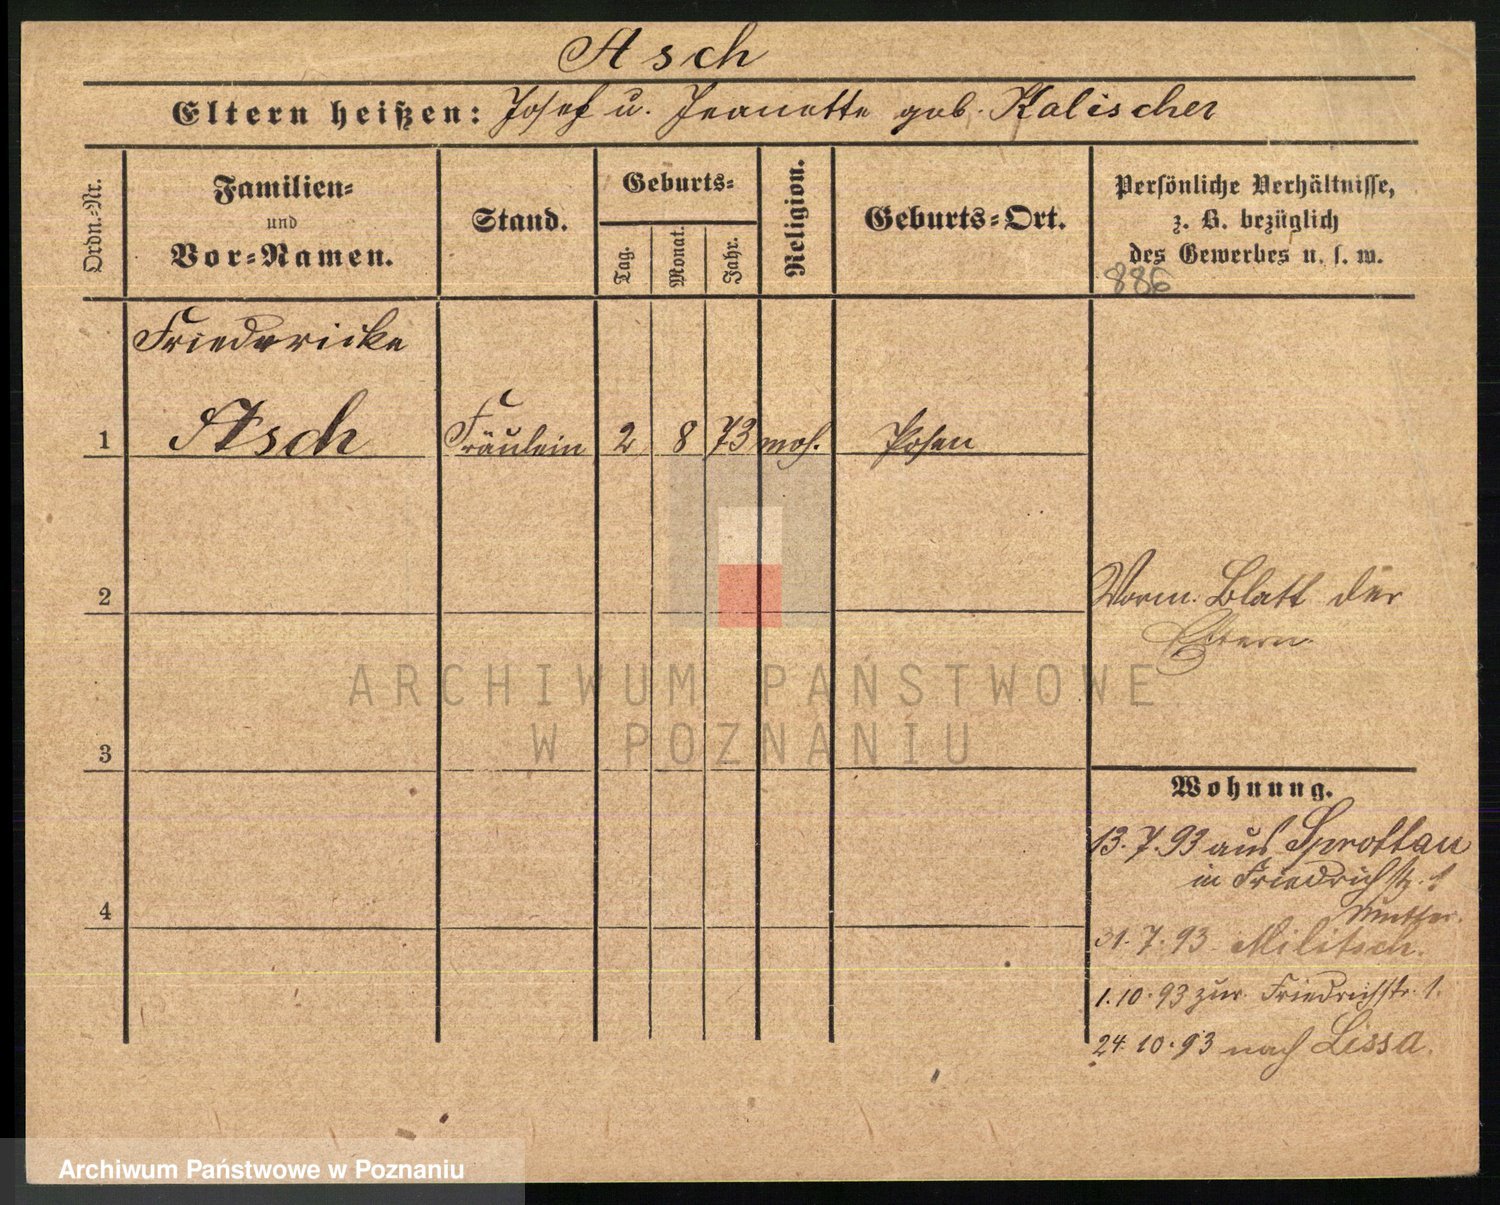 Asch
Eltern heißen: Josef u. Jeanette geb. Kalischer
Ordn.-Nr.
Familien-
und
Vor-Namen.
Stand.
Geburts-
Tag.
Monat.
Jahr.
Religion.
Geburts-Ort.
Persönliche Verhältnisse,
z. B. bezüglich
des Gewerbes u. s. w.
886
Friedericke
1 Asch Fräulein 2 8 73 mos. Posen
2
Vorm. Blatt der
Eltern
ARCHIWUM PAŃSTWOWE
W POZNANIU
3
Wohnung.
13.7.93 aus Sprottau
in Friedrichstr. 1
Mutter.
4
31.7.93 Militsch.
1.10.93 zur. Friedrichstr. 1.
24.10.93 nach Lissa.
Archiwum Państwowe w Poznaniu